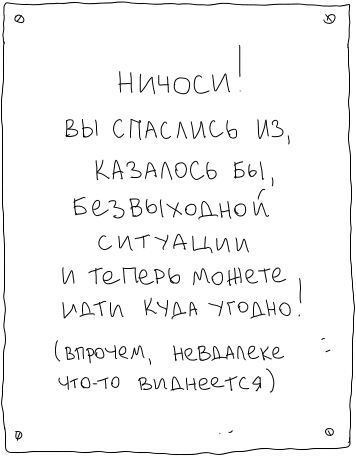 НИЧОСИ!
ВЫ СПАСЛИСЬ ИЗ,
КАЗАЛОСЬ БЫ,
БЕЗВЫХОДНОЙ
СИТУАЦИИ
И ТЕПЕРЬ МОЖЕТЕ
ИДТИ КУДА УГОДНО!
(ВПРОЧЕМ, НЕВДАЛЕКЕ
ЧТО-ТО ВИДНЕЕТСЯ)